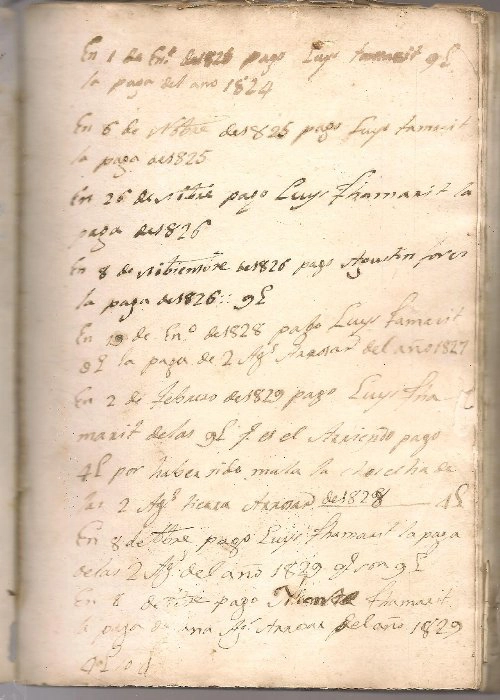 En 1 de En.º de 1826 pago Luys tamarit 9£
la paga del año 1824
En 6 de Nobre de 1825 pago Luys tamarit
la paga de 1825
En 26 de pago Luys Thamarit la
paga de 1826
En 8 de de 1826 pago Agustin fores
la paga de 1826:: 9£
En de En.º de 1828 pago Luys tamarit
9£ la paga de 2 Arrosar del año 1827
En 2 de Febrero de 1829 pago Luys Tha
marit de las 9£ q. es el Arriendo pago
4£ por haber sido mala la cosecha de
las 2 tierra Arrosar de 1828 4£
En 8 de pago Luys Thamarit la paga
de las 2 del año 1829 q. son 9£
En 8 de pago Thamarit
la paga de una Arrosar del año 1829